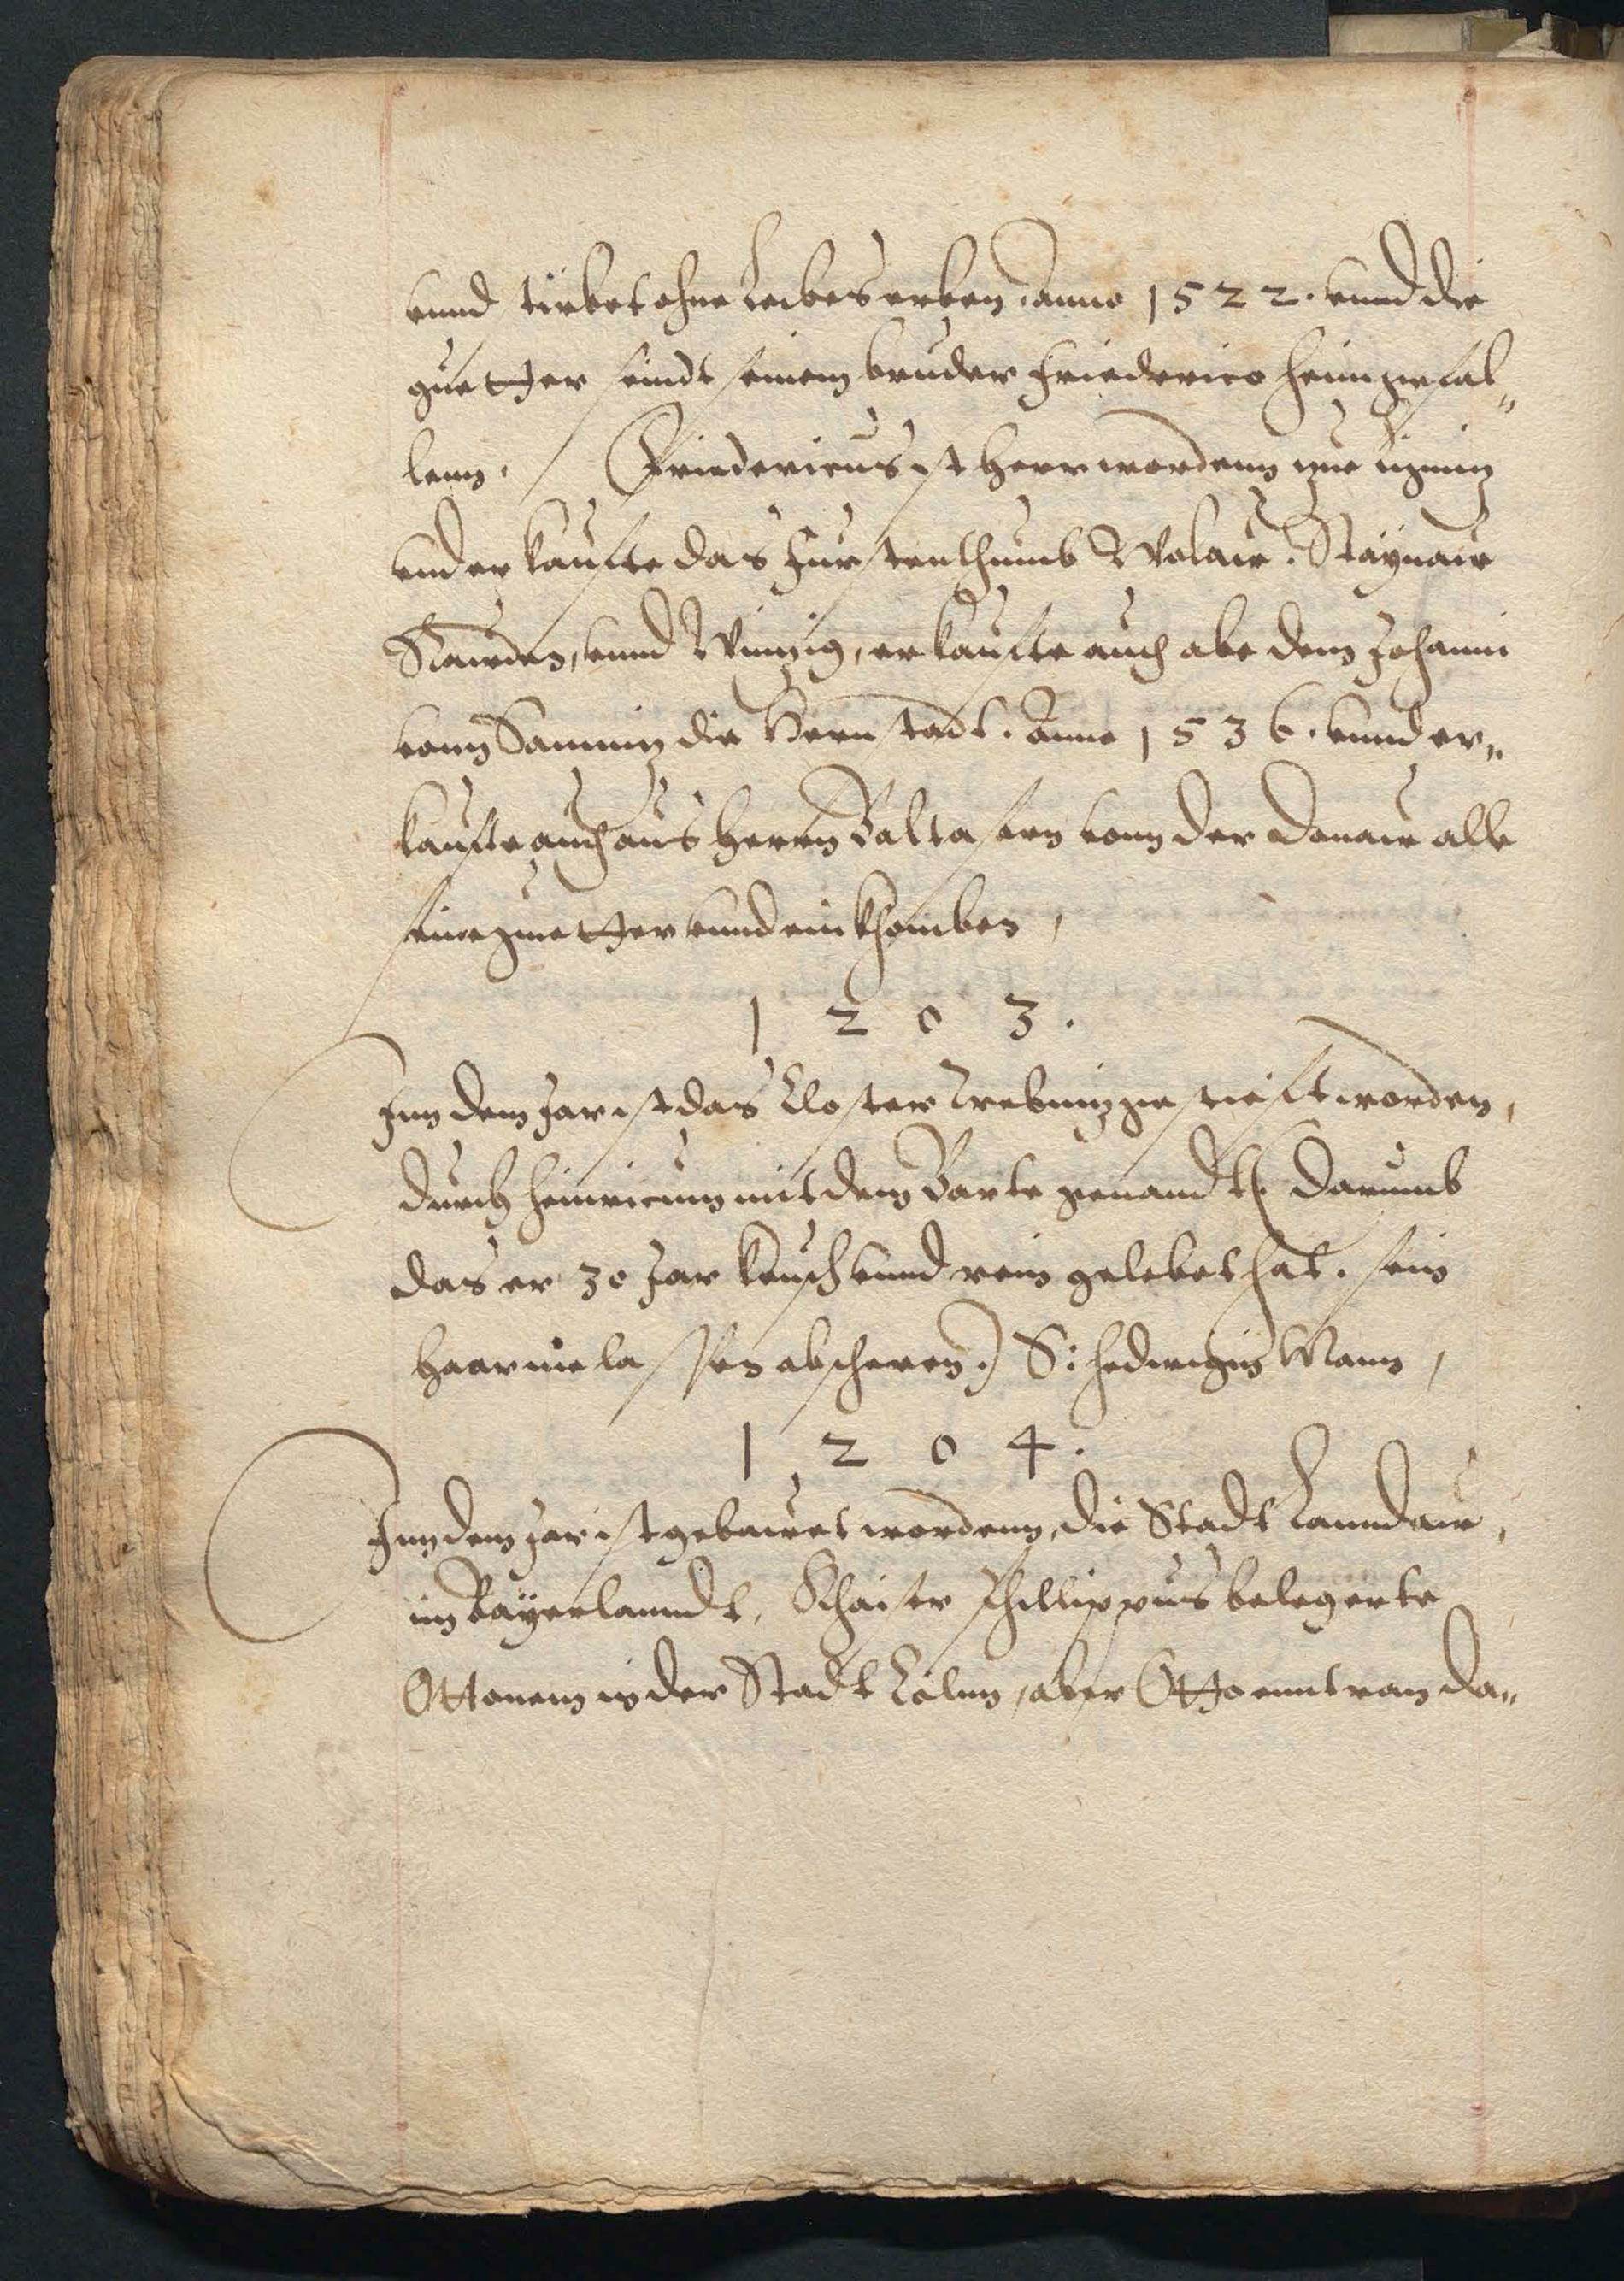 vnnd stirbet ohne Leibes erben. anno 1522. vnnd die
guetter seindt seinem bruder Friederico heimgefal„
lenn. Friedericus ist Herr wordenn zue Ligniz
vnd erkaufte das Fürstenthumb Wolaw. Staynaw
Rawden, vnnd Winzig, erkaufte auch abe dem Johanni
vonn die Hernstadt. Anno 1536. vnnd er„
kaufte auch aus Herrn Baltasern vonn der Danaw alle
seine guetter vnnd einkhomben,
1203.
Inn dem Jar ist das Closter Trebniz gestieft worden,
durch Heinricum mit dem Barte genandt (Darumb
das er 30 Jar keusch vnnd rein gelebet hat. sein
Haar nie lassen abscheren.) S: Hedwigis Mann,
1204.
Inn dem Jar ist gebawet wordenn, die Stadt Lanndaw,
im Bayerlanndt, Khaiser Phillippus belegerte
Ottonem in der Stadt Cölnn, aber Otto enntran da„